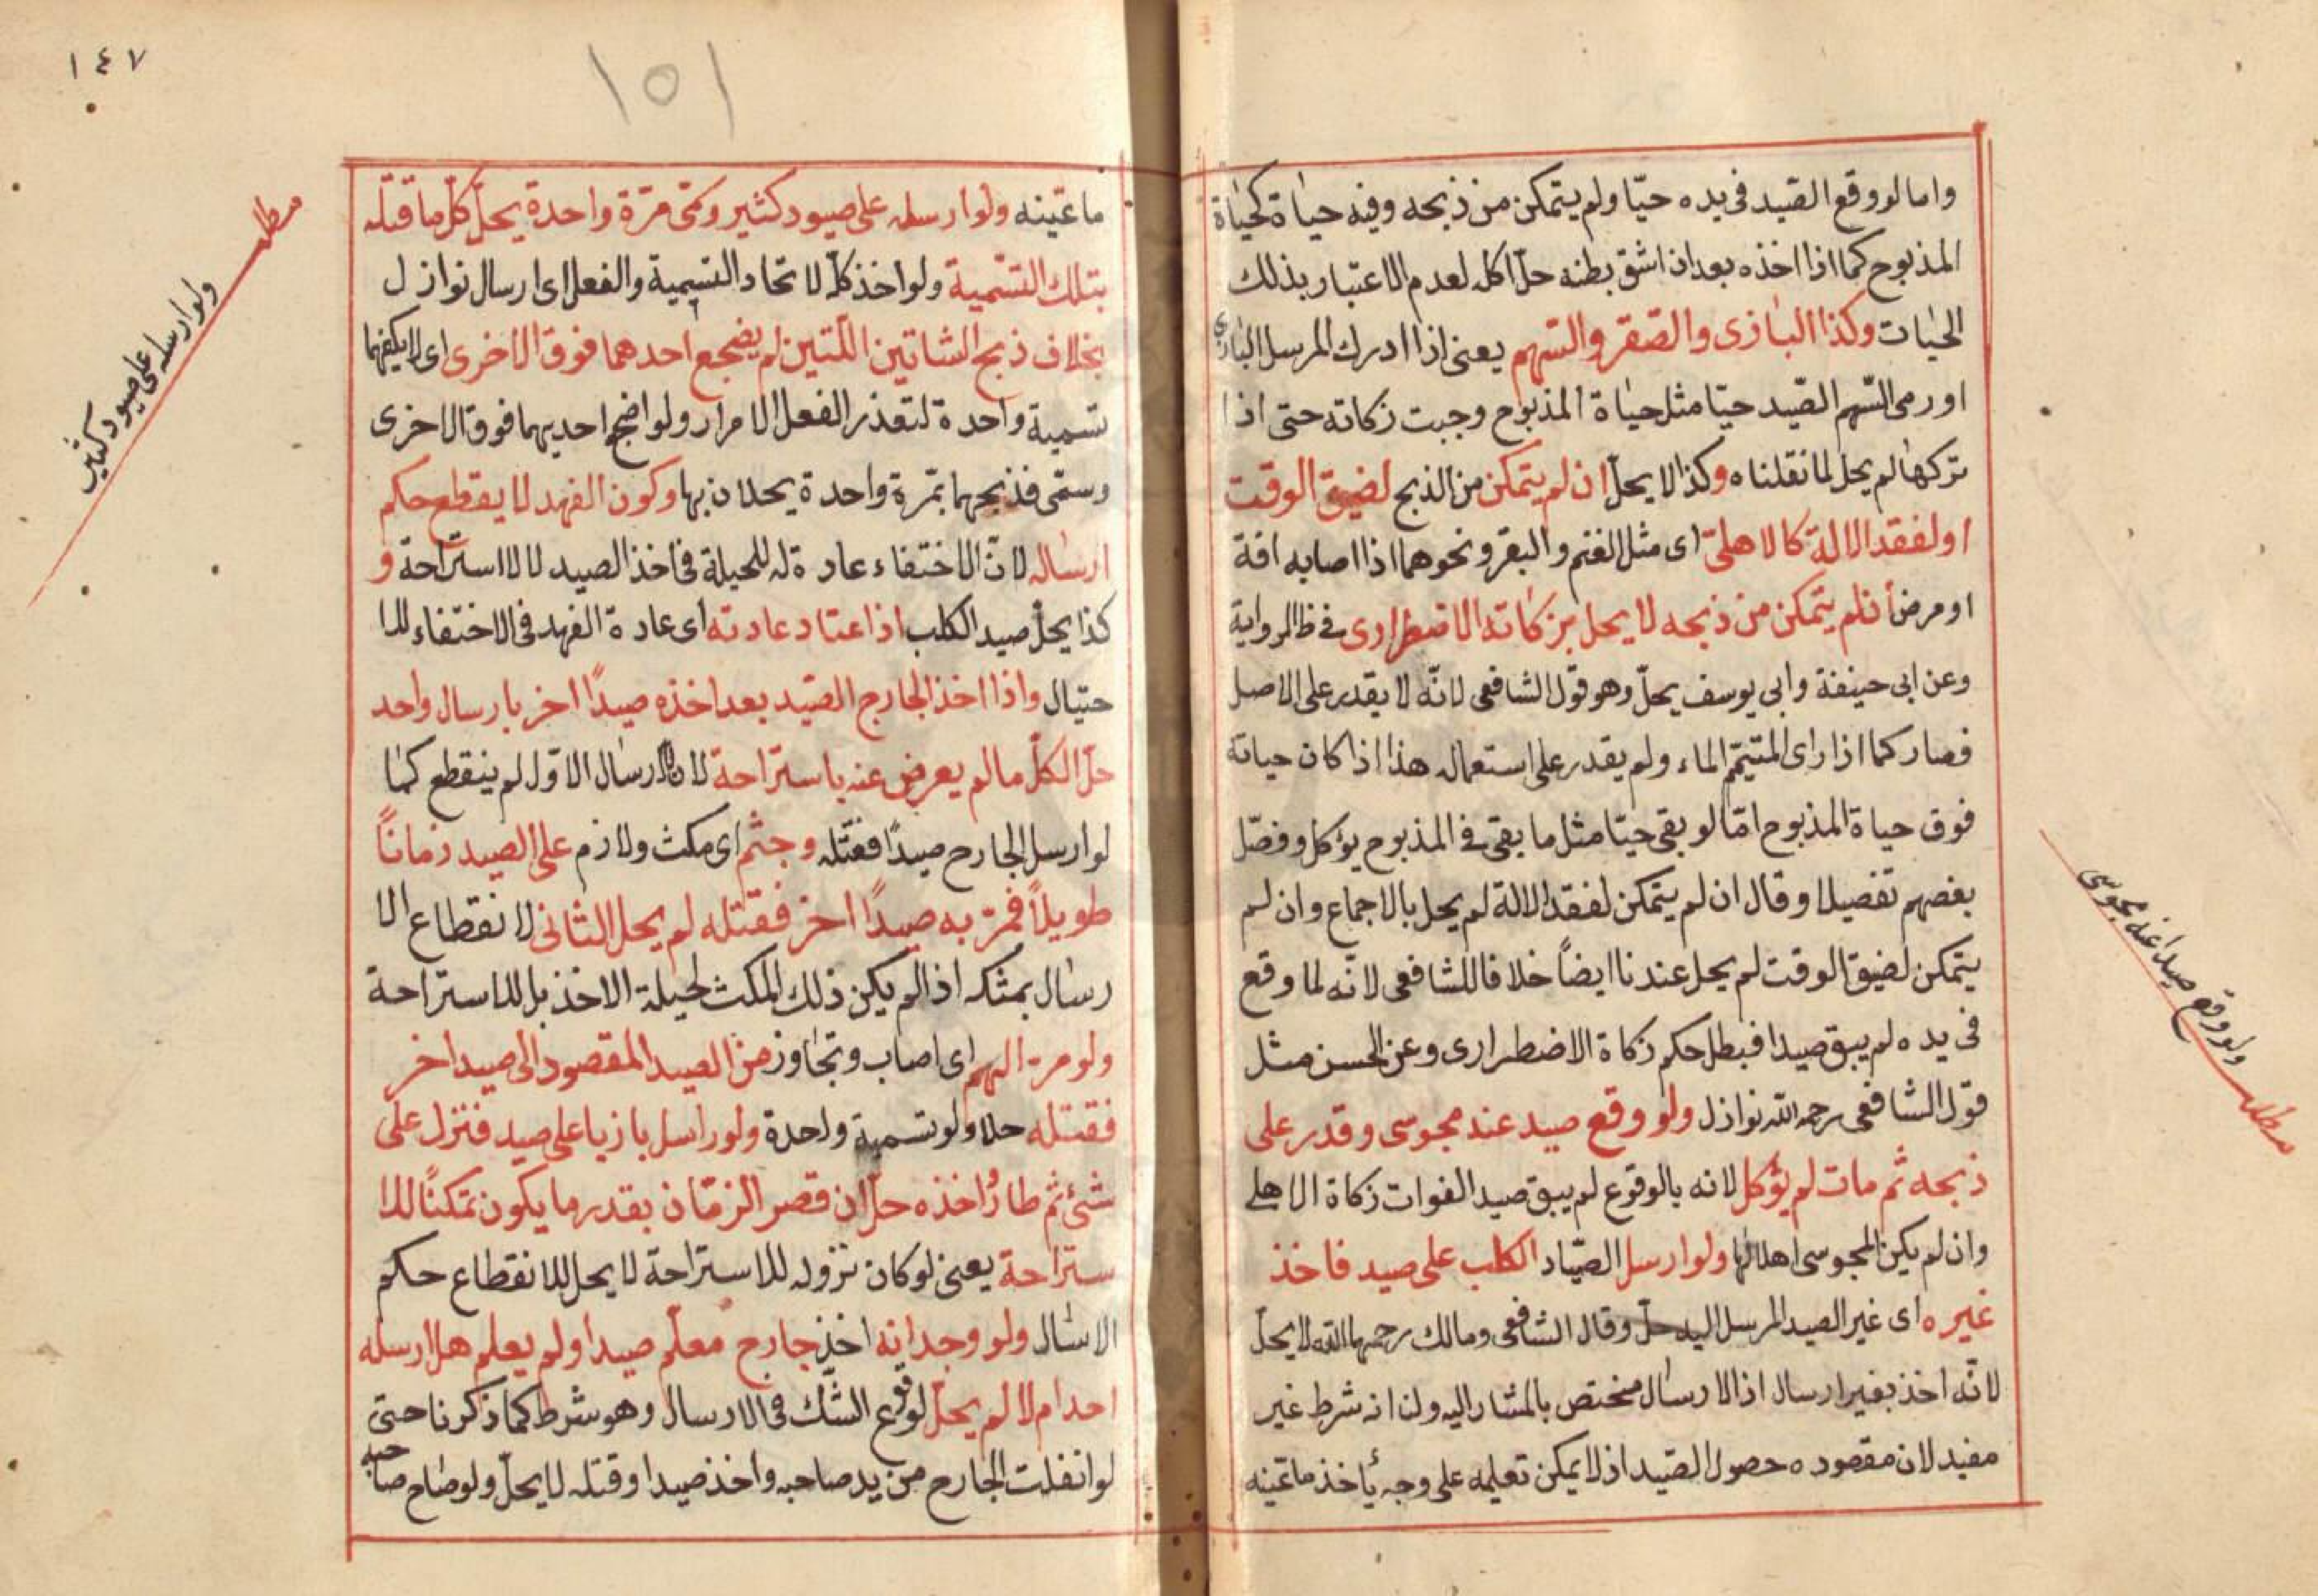 واما لو وقع الصّيد فى يده حيّا ولم يتمكن من ذبحه وفيه حياة كحياة
المذبوح كما اذا اخذه بعد ان اشق بطنه حلّ اكله لعدم الاعتبار بذلك
الحيات وكذا البازى والصّقر والسّهم يعنى اذا ادرك المرسل البازى
او رمى السّهم الصّيد حيّا مثل حياة المذبوح وجبت زكاته حتى اذا
تركها لم يحل لما نقلناه وكذا لا يحلّ ان لم يتمكن من الذبح لضيق الوقت
او لفقد الالة كالاهلىّ اى مثل الغنم والبقر ونحوهما اذا اصابه افة
او مرض أن لم يتمكن من ذبحه لا يحل بزكاته الاضطرارى فى ظ الرواية
وعن ابى حنيفة وابى يوسف يحلّ وهو قول الشافعى لانّه لا يقدر على الاصل
فصار كما اذا راى المتيمّم الماء ولم يقدر على استعماله هذا اذا كان حياته
فوق حياة المذبوح امّا لو بقى حيّا مثل ما بقى فى المذبوح يؤكل وفصّل
بعضهم تفصيلا وقال ان لم يتمكن لفقد الالة لم يحل بالاجماع وان لم
يتمكن لضيق الوقت لم يحل عندنا ايضاً خلافا للشافعى لانّه لما وقع
فى يده لم يبق صيدا فبطل حكم زكاة الاضطرارى وعن الحسن مثل
قول الشافعى رحمه الله نوازل ولو وقع صيد عند مجوسى وقدر على
ذبحه ثم مات لم يؤكل لانه بالوقوع لم يبق صيد الفوات زكاة الاهلى
وان لم يكن المجوسى اهلا لها ولو ارسل الصيّاد الكلب على صيد فاخذ
غيره اى غير الصيد المرسل اليه حلّ وقال الشافعى ومالك رحمهما الله لا يحلّ
لانّه اخذ بغير ارسال اذ الارسال مختص بالمشار اليه ولنا انه شرط غير
مفيد لان مقصوده حصول الصّيد اذ لا يمكن تعليمه على وجه يأخذ ما عيّنه
مطلب
ولو وقع صيد عند مجوسى
١٤٧
١٥١
ما عيّنه ولو ارسله على صيود كثير وسمّى مرّة واحدة يحلّ كلّ ما قتله
بتلك التسّمية ولو اخذ كلّه لاتحاد التسمية والفعل اى ارسال نوازل
بخلاف ذبح الشاتين اللّتين لم يضجع احدهما فوق الاخرى اى لا يكفيهما
تسمية واحدة لتعذر الفعل الامرار ولو اضجع احديهما فوق الاخرى
وسمّى فذبحهما بمّرة واحدة يحلان بها وكون الفهد لا يقطع حكم
ارساله لانّ الاختفاء عادة له للحيلة فى اخذ الصيد لا للاستراحة و
كذا يحلّ صيد الكلب اذا اعتاد عادته اى عادة الفهد فى الاختفاء للا
حتيال واذا اخذ الجارح الصّيد بعد اخذه صيدًا اخر بارسال واحد
حلّ الكلّ ما لم يعرض عنه باستراحة لان الارسال الاوّل لم ينقطع كما
لو ارسل الجارح صيدًا فقتله وجثم اى مكث ولازم على الصيد زماناً
طويلاً فمرّ به صيدًا اخر فقتله لم يحل الثانى لانقطاع الا
رسال بمثكه اذا لم يكن ذلك المكث لحيلة الاخذ بل للاستراحة
ولو مرّ السهم اى اصاب وتجاوز من الصيد المقصود الى صيد اخر
فقتله حلا ولو تسمية واحدة ولو راسل بازيا على صيد فنزل على
شئ ثم طار واخذه حلّ ان قصر الزمّان بقدر ما يكون تمكنًا للا
ستراحة يعنى لو كان نزوله للاستراحة لا يحل للانقطاع حكم
الاسال ولو وجد انه اخذ جارح معلّم صيدا ولم يعلم هل ارسله
احد ام لا لم يحلّ لوقوع الشّك فى الارسال وهو شرط كما ذكرنا حتى
لو انفلت الجارح من يد صاحبه واخذ صيدا وقتله لا يحلّ ولو صاح صاحبه
مطلب
ولو ارسله على صيود كثير